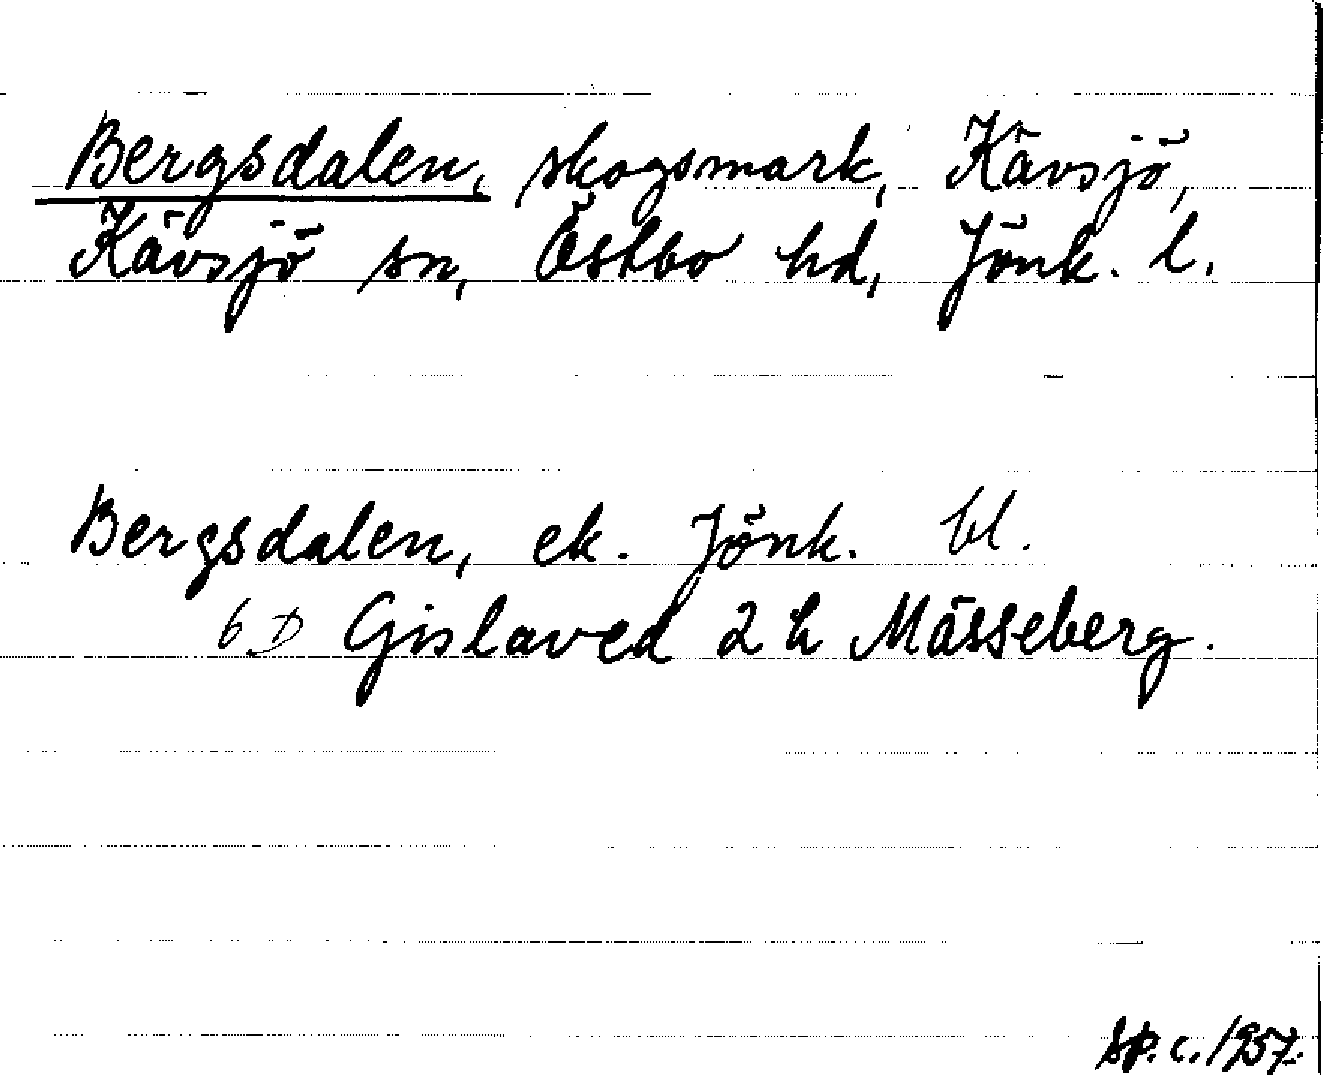 Bergsdalen, skogsmark, Kävsjö,
Kävsjö sn, Östbo hd, Jönk. l.
Bergsdalen, ek. Jönk. bl.
6 D Gislaved 2 h Mässeberg.
SP. c. 1957.